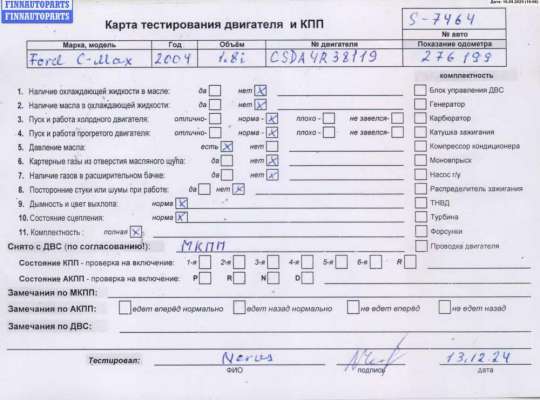 FINNAUTOPARTS
FINNAUTOPARTS
Карта тестирования двигателя и КПП
S-7464
№ авто
Марка, модель Год Объём № двигателя Показание одометра
Ford C-Max 2004 1.8i CSDA4R38119 276 199
комплектность
1. Наличие охлаждающей жидкости в масле: да нет x
Блок управления ДВС
2. Наличие масла в охлаждающей жидкости: да нет x
Генератор
3. Пуск и работа холодного двигателя: отлично- норма - x плохо - не завелся-
Карбюратор
4. Пуск и работа прогретого двигателя: отлично- норма - x плохо - не завелся-
Катушка зажигания
5. Давление масла: есть x нет
Компрессор кондиционера
6. Картерные газы из отверстия масляного щупа: да нет x
Моновпрыск
7. Наличие газов в расширительном бачке: да нет x
Насос г/у
8. Посторонние стуки или шумы при работе: да нет x
Распределитель зажигания
9. Дымность и цвет выхлопа: норма x
ТНВД
10. Состояние сцепления: норма x
Турбина
11. Комплектность : полная x
Форсунки
Снято с ДВС (по согласованию!): МКПП
Проводка двигателя
Состояние КПП - проверка на включение: 1-я 2-я 3-я 4-я 5-я 6-я R
Состояние АКПП - проверка на включение: P R N D
Замечания по МКПП:
Замечания по АКПП: едет вперёд нормально едет назад нормально не едет вперёд не едет назад
Замечания по ДВС:
Тестировал: 13.12.24
ФИО подпись дата